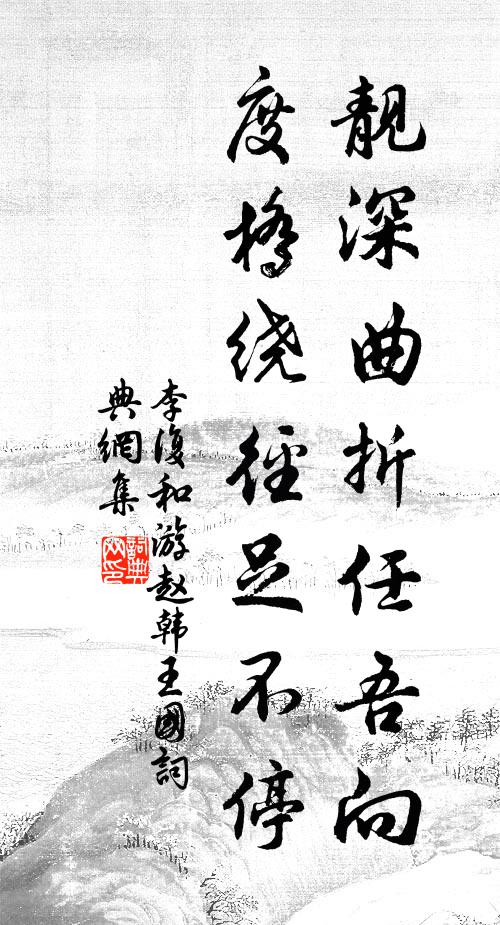 靓深曲折任吾向
度桥绕径足不停
李復和游赵韩王國詞
典網集
詞典
网印